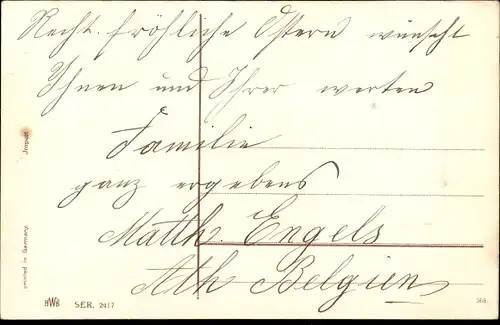 Recht fröhliche Ostern wünscht
Ihnen und Ihrer werten
Familie
ganz ergebens
Matth. Engels
Ath Belgien
Import
printed in Germany.
HWB SER. 2417